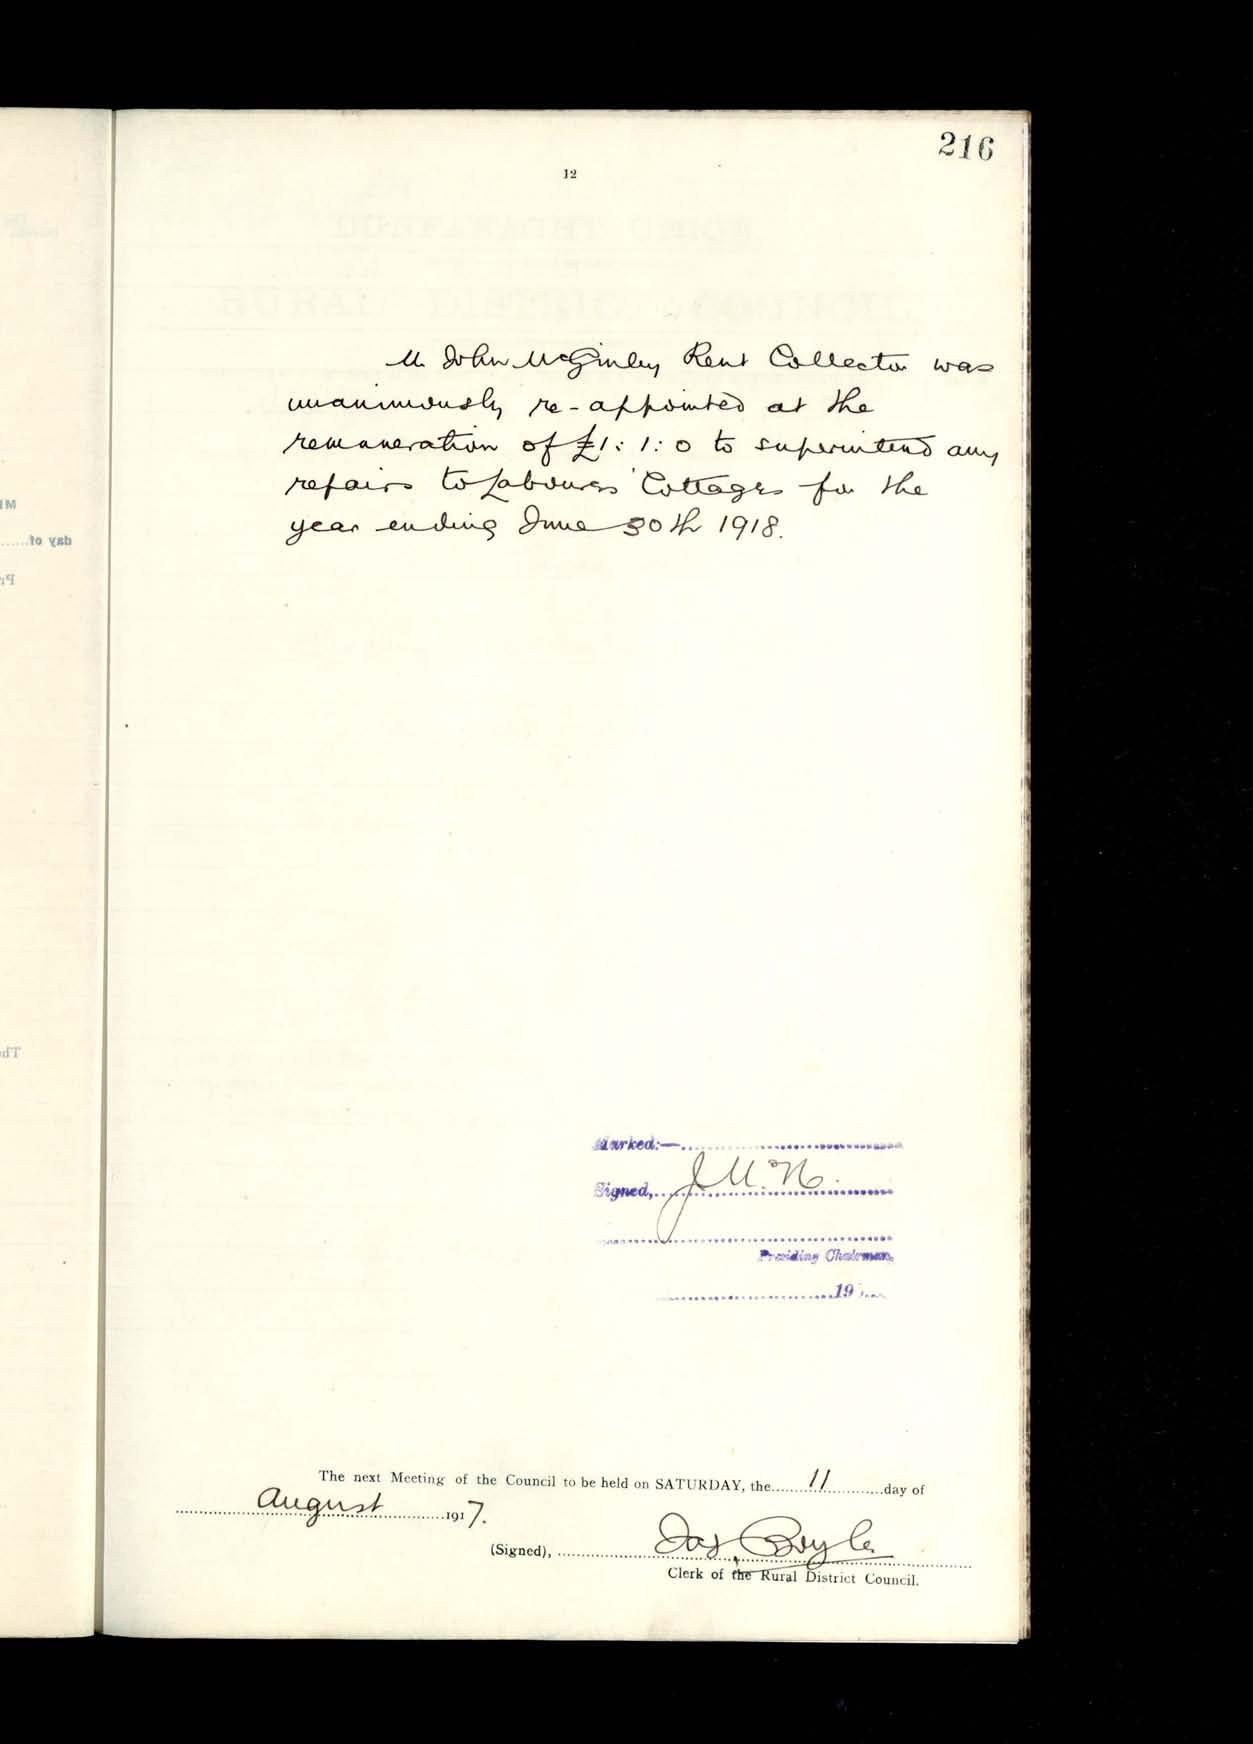 216
12
Mr John McGinley Rent Collector was
unanimously re-appointed at the
remuneration of £1:1:0 to superintend any
repairs to Labourers' Cottages for the
year ending June 30th 1918.
Marked:—
J McN.
Signed,
Presiding Chairman.
19
The next Meeting of the Council to be held on SATURDAY, the 11 day of
August 1917.
(Signed), Jas. Boyle
Clerk of the Rural District Council.
day of